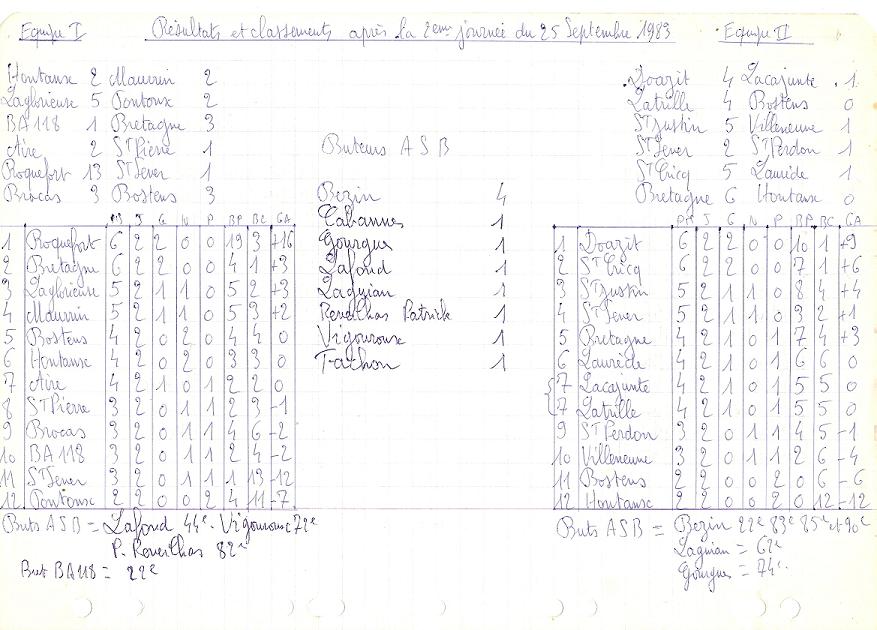 Equipe I Résultats et classements après la 2eme journée du 25 Septembre 1983 Equipe II
Hontanx 2 Maurrin 2
Laglorieuse 5 Pontonx 2
BA 118 1 Bretagne 3
Aire 2 St Pierre 1
Roquefort 13 St Sever 1
Brocas 3 Bostens 3
Pts J G N P BP BC GA
1 Roquefort 6 2 2 0 0 19 3 +16
2 Bretagne 6 2 2 0 0 4 1 +3
3 Laglorieuse 5 2 1 1 0 5 2 +3
4 Maurrin 5 2 1 1 0 5 3 +2
5 Bostens 4 2 0 2 0 4 4 0
6 Hontanx 4 2 0 2 0 3 3 0
7 Aire 4 2 1 0 1 2 2 0
8 St Pierre 3 2 0 1 1 2 3 -1
9 Brocas 3 2 0 1 1 4 6 -2
10 BA 118 3 2 0 1 1 2 4 -2
11 St Sever 3 2 0 1 1 1 13 -12
12 Pontonx 2 2 0 0 2 4 11 -7
Buts ASB = Lafond 44e. Vigouroux 72e
P. Reveilhas 82e
But BA 118 = 22e
Buteurs ASB
Bezin 4
Cabannes 1
Gourgues 1
Lafond 1
Lagüian 1
Reveilhas Patrick 1
Vigouroux 1
Tachon 1
Doazit 4 Lacajunte 1
Latrille 4 Bostens 0
St Justin 5 Villeneuve 1
St Sever 2 St Perdon 1
St Cricq 5 Laurède 1
Bretagne 6 Hontanx 0
Pts J G N P BP BC GA
1 Doazit 6 2 2 0 0 10 1 +9
2 St Cricq 6 2 2 0 0 7 1 +6
3 St Justin 5 2 1 1 0 8 4 +4
4 St Sever 5 2 1 1 0 3 2 +1
5 Bretagne 4 2 1 0 1 7 4 +3
6 Laurède 4 2 1 0 1 6 6 0
7 Lacajunte 4 2 1 0 1 5 5 0
7 Latrille 4 2 1 0 1 5 5 0
9 St Perdon 3 2 0 1 1 4 5 -1
10 Villeneuve 3 2 0 1 1 2 6 -4
11 Bostens 2 2 0 0 2 0 6 -6
12 Hontanx 2 2 0 0 2 0 12 -12
Buts ASB = Bezin 22e 83e 85e et 90e
Lagüian = 62e
Gourgues = 74e.